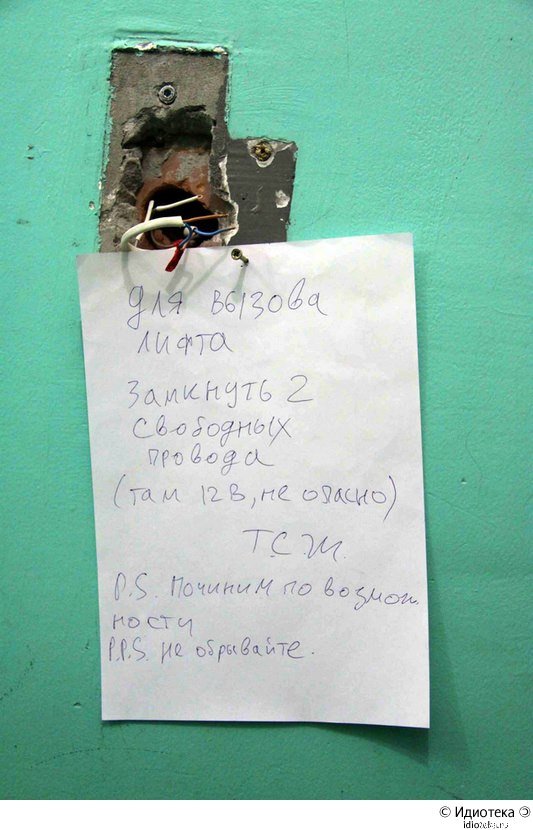 для вызова
лифта
замкнуть 2
свободных
провода
(там 12В, не опасно)
Т.С.Ж.
P.S. починим по возмож
ности
P.P.S. не обрывайте.
© Идиотека